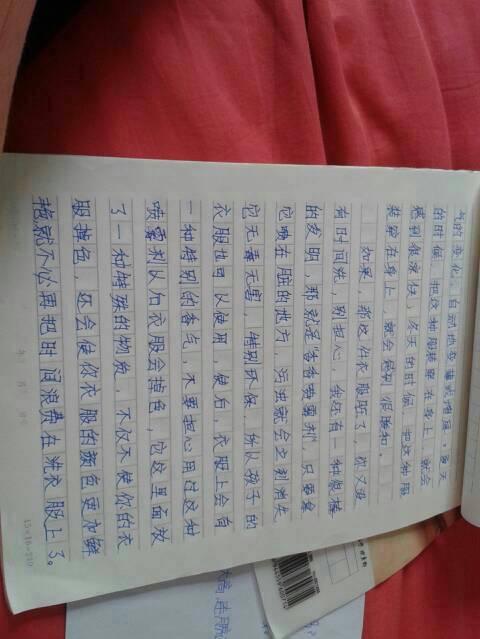 气的变化，自动地变薄或增厚。夏天
的时候，把这种服装穿在身上，就会
感到很凉快，冬天的时候，把这种服
装穿在身上，就会感到很暖和。
如果，你这件衣服脏了，你又没
有时间洗，别担心，我还有一种很棒
的发明，那就是“香香喷雾剂”，只要拿
它喷在脏的地方，污渍就会立刻消失
它无毒无害，特别环保，所以孩子的
衣服也可以使用，使后，衣服上会有
一种特别的香气，不要担心用过这种
喷雾剂以后衣服会掉色，它这里面放
了一种特殊的物质，不仅不使你的衣
服掉色，还会使你衣服的颜色更加鲜
艳就不必再把时间浪费在洗衣服上了。